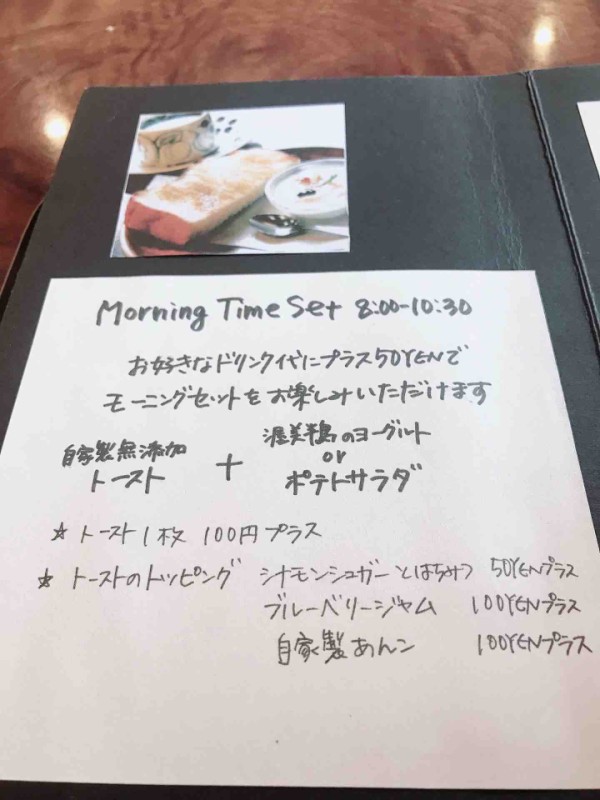 Morning Time Set 8:00-10:30
お好きなドリンク代にプラス50YENで
モーニングセットをお楽しみいただけます
自家製無添加
トースト
+
渥美半島のヨーグルト
or
ポテトサラダ
☆ トースト1枚 100円プラス
☆ トーストのトッピング シナモンシュガーとはちみつ 50YENプラス
ブルーベリージャム 100YENプラス
自家製あんこ 100YENプラス